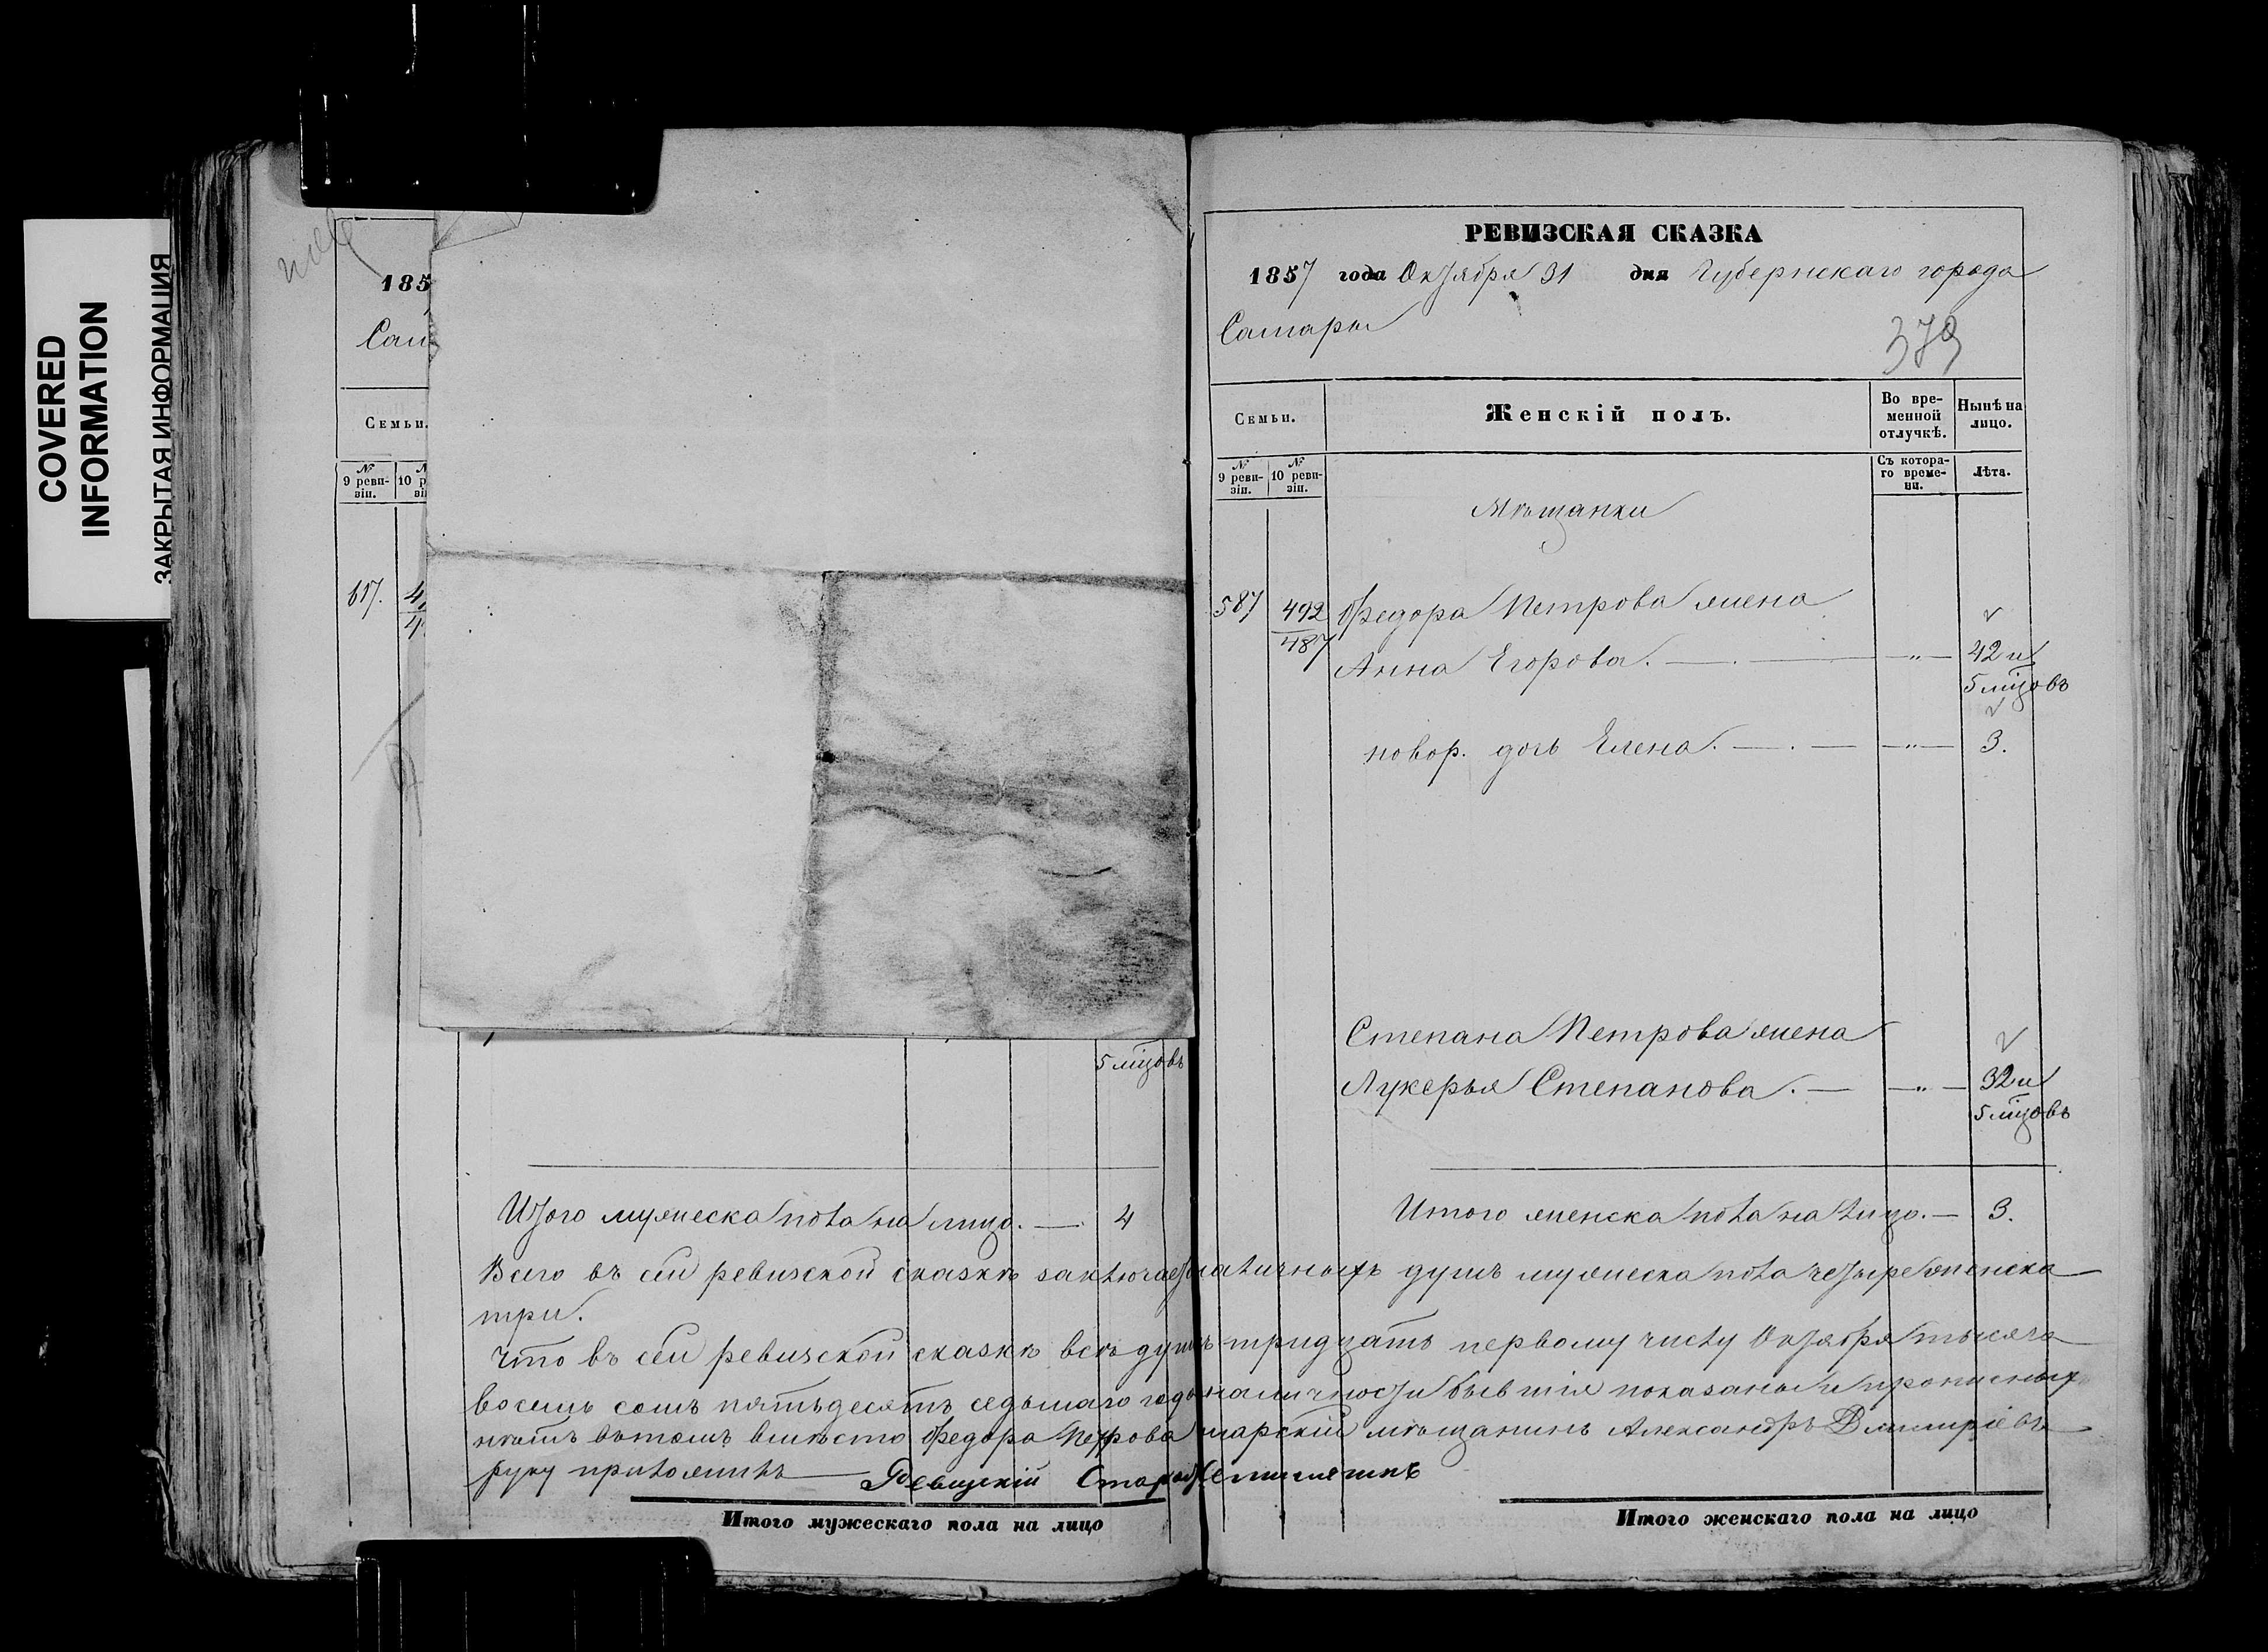 COVERED
INFORMATION
ЗАКРЫТАЯ ИНФОРМАЦИЯ
185
Сам
Семьи.
№
9 реви-
зіи.
10 р
617.
5 мцовъ
Итого мужеска пола на лицо. — 4
РЕВИЗСКАЯ СКАЗКА
1857 года Октября 31 дня Губернскаго города
Самары
379
Семьи.
Женскій полъ.
Во вре-
менной
отлучкѣ.
Нынѣ на
лицо.
№
9 реви-
зіи.
№
10 реви-
зіи.
Съ котора-
го време-
ни.
Лѣта.
Мѣщанки
587 492 Федора Петрова жена
487
Анна Егорова. — „ — 42 и
5 мцовъ
повор. дочь Елена. — „ — 3.
Степана Петрова жена
Лукерья Степанова. — „ — 32 и
5 мцовъ
Итого женска пола на лицо. — 3.
Всего въ сей ревизской сказкѣ заключает наличныхъ душъ мужеска пола четыре женска
три.
Что въ сей ревизской сказкѣ всѣ душъ тридцать первому числу Октября тысяча
восемь сотъ пятьдесятъ седьмаго года наличности бывшія показаны и прописныхъ
нѣтъ вътомъ вмѣсто Федора Петрова марскій мѣщанинъ Александръ Дмитріевъ
руку приложилъ — Ревизскій Старо
Итого мужескаго пола на лицо
Итого женскаго пола на лицо